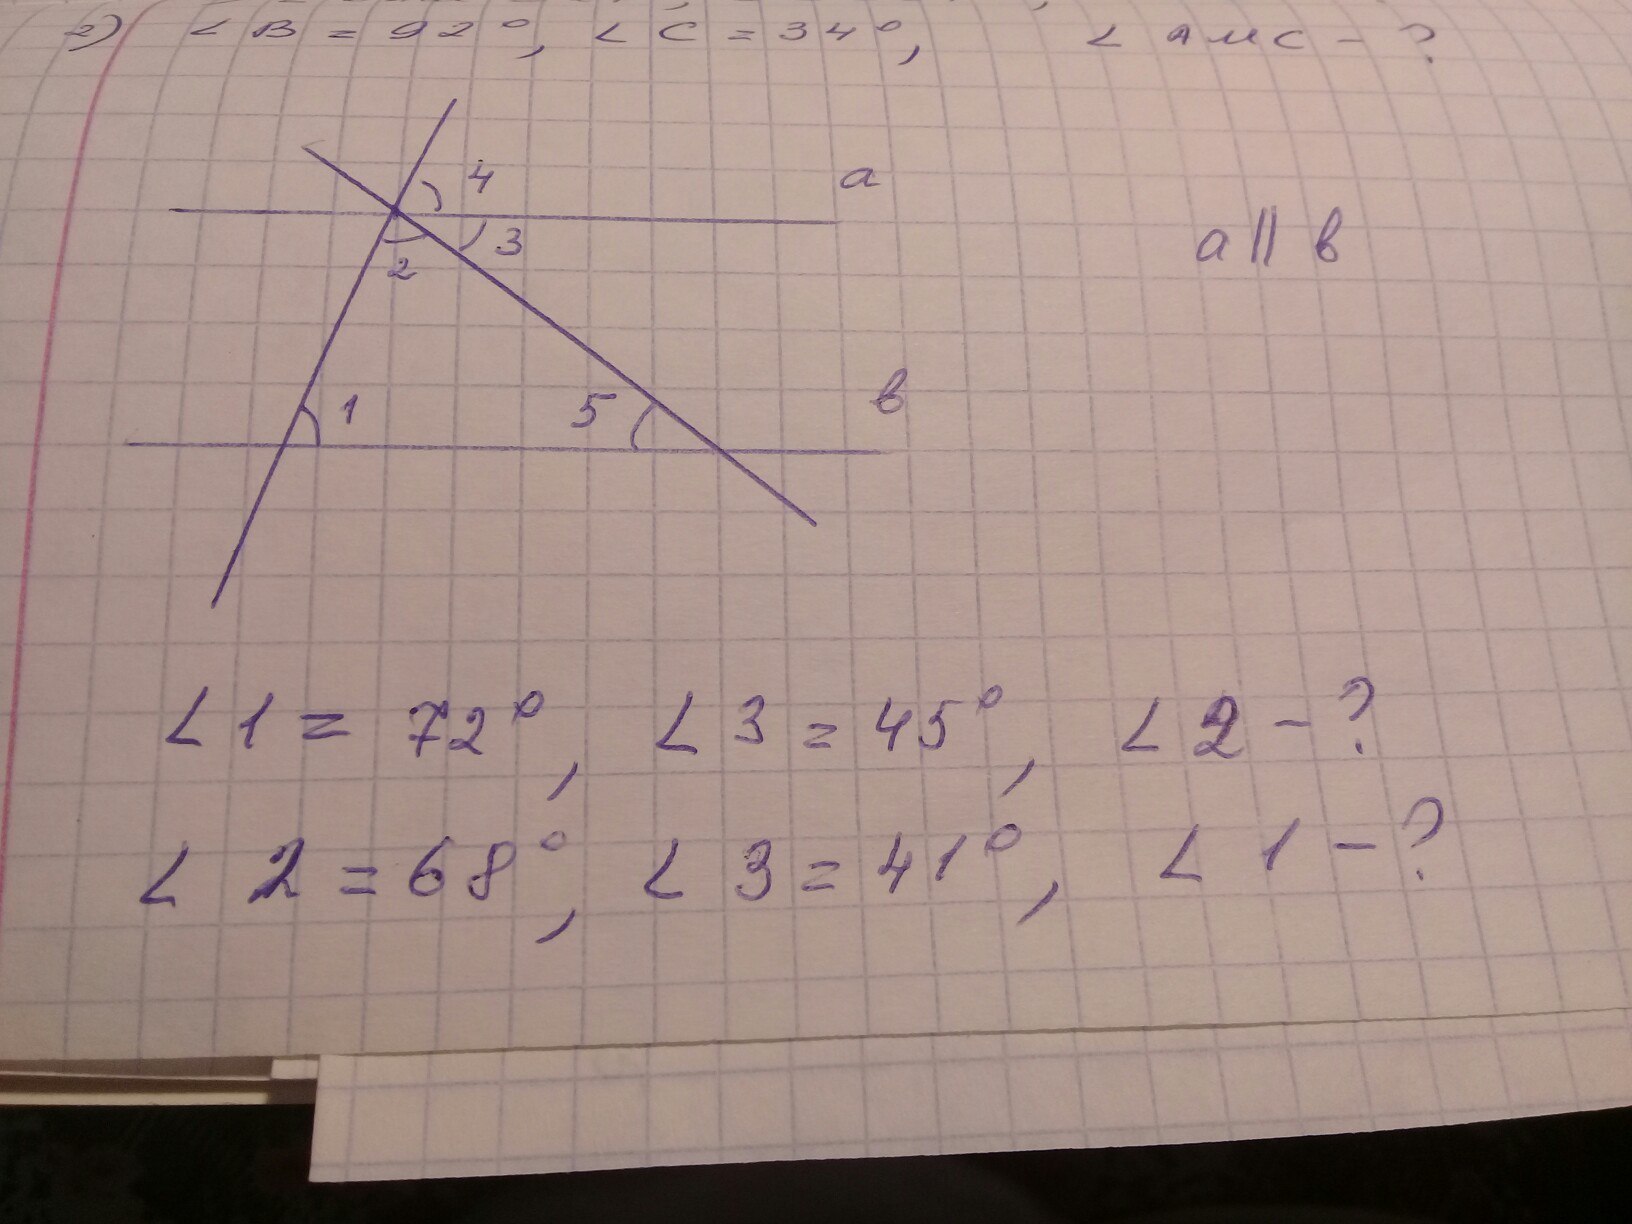 2) ∠B = 92°, ∠C = 34°, ∠AMC - ?
4
a
3
2
a || b
1
5
b
∠1 = 72°, ∠3 = 45°, ∠2 - ?
∠2 = 68°, ∠3 = 41°, ∠1 - ?